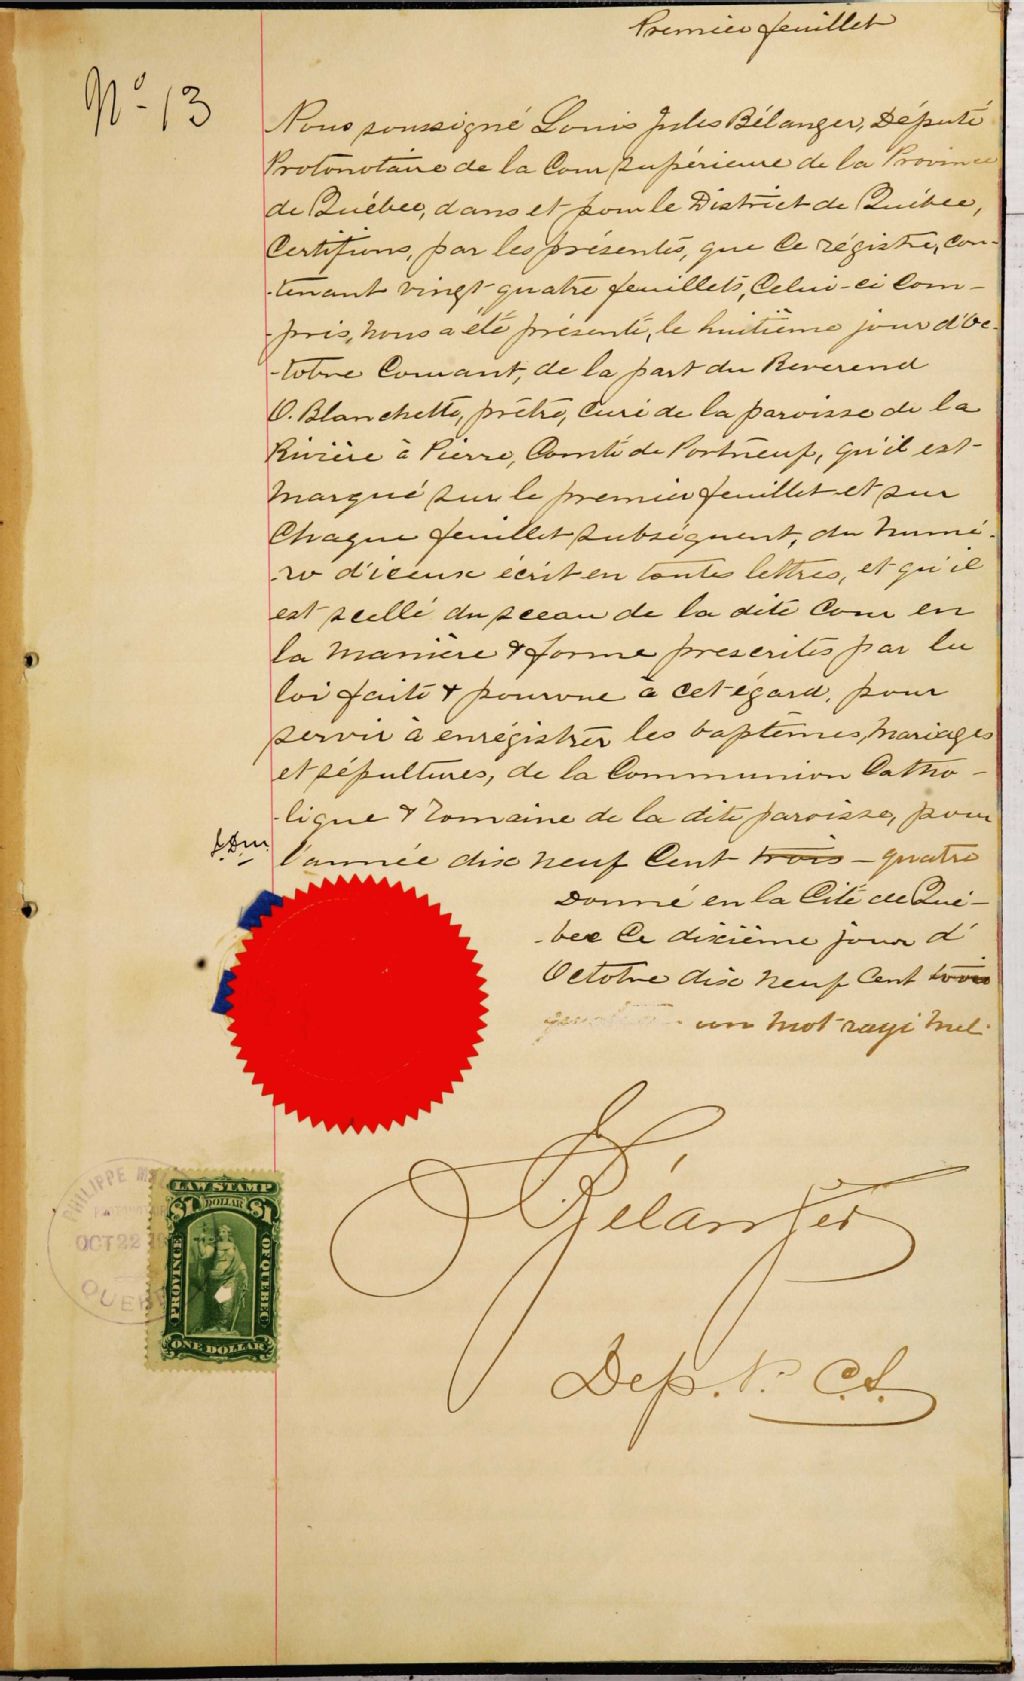 Premier feuillet
No 13
Nous soussigné Louis Jules Bélanger, Député
Protonotaire de la Cour Supérieure de la Province
de Québec, dans et pour le District de Québec,
Certifions, par les présentes, que ce régistre, con-
-tenant vingt-quatre feuillets, Celui-ci com-
-pris, nous a été présenté, le huitième jour d'Oc-
-tobre Courant, de la part du Reverend
O. Blanchette, prêtre, curé de la paroisse de la
Rivière à Pierre, Comté de Portneuf, qu'il est
marqué sur le premier feuillet et sur
Chaque feuillet subséquent, du numé-
-ro d'iceux écrit en toutes lettres, et qu'il
est scellé du sceau de la dite Cour en
la manière & forme prescrites par la
loi faite & pourvue à cet égard, pour
servir à enrégistrer les baptêmes, mariages
et sépultures, de la Communion Catho-
-lique & romaine de la dite paroisse, pour
l'année dix neuf Cent trois - quatre
Donné en la Cité de Qué-
-bec Ce dixième jour d'
Octobre dix neuf Cent trois
un mot rayé nul.
LJBélanger
Dep. P. C.S.
PHILIPPE
OCT 22
QUEBEC
LAW STAMP
$1 DOLLAR $1
PROVINCE OF QUEBEC
ONE DOLLAR